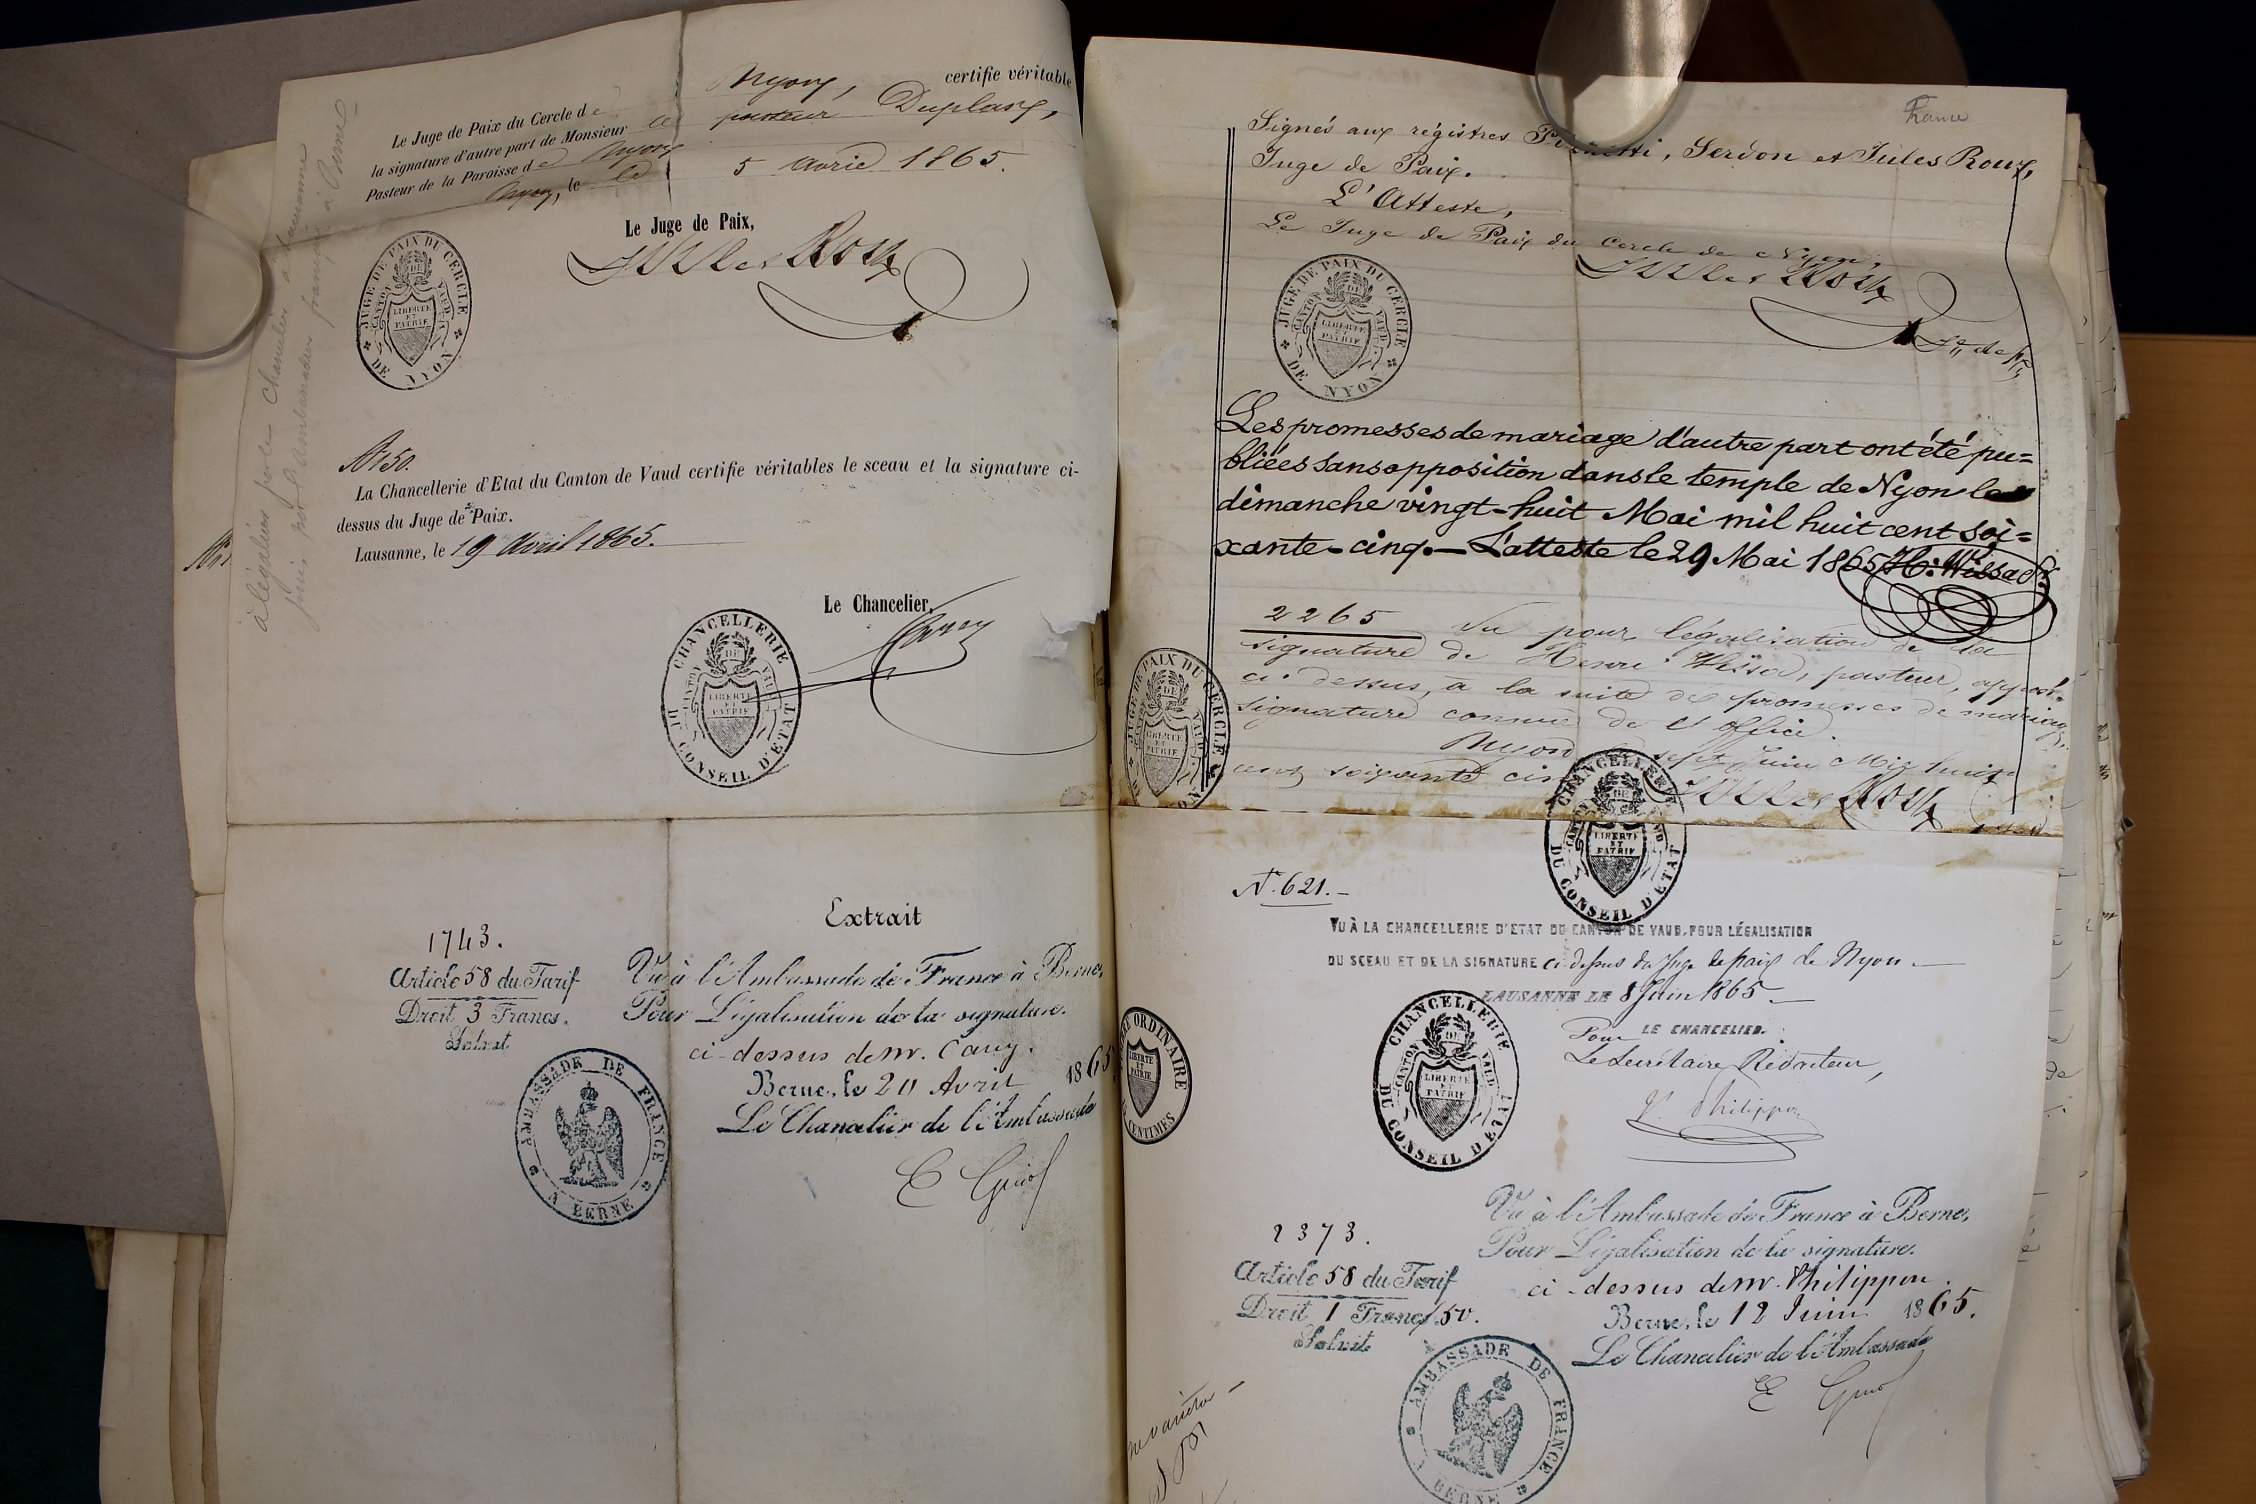 Le Juge de Paix du Cercle de Nyon, certifie véritable
la signature d'autre part de Monsieur le pasteur Duplan,
Pasteur de la Paroisse de Nyon
Nyon, le 5 avril 1865.
Le Juge de Paix,
Jules Roux
JUGE DE PAIX DU CERCLE DE NYON
CANTON DE VAUD
LIBERTE ET PATRIE
à légaliser par le Chancelier à Lausanne
puis par l'ambassadeur français à Berne
N° 150.
La Chancellerie d'Etat du Canton de Vaud certifie véritables le sceau et la signature ci-
dessus du Juge de Paix.
Lausanne, le 19 Avril 1865.
Le Chancelier,
CHANCELLERIE DU CONSEIL D'ETAT
CANTON DE VAUD
LIBERTE ET PATRIE
Extrait
1743.
Article 58 du Tarif
Droit 3 Francs.
Vu à l'Ambassade de France à Berne,
Pour Légalisation de la signature
ci-dessus de M. Carey.
Berne, le 20 Avril 1865
Le Chancelier de l'Ambassade
AMBASSADE DE FRANCE A BERNE
France
Signés aux régistres , Serdon et Jules Roux,
Juge de Paix.
L'Atteste,
Le Juge de Paix du Cercle de Nyon,
Jules Roux
JUGE DE PAIX DU CERCLE DE NYON
CANTON DE VAUD
LIBERTE ET PATRIE
Les promesses de mariage d'autre part ont été pu=
bliées sans opposition dans le temple de Nyon le
dimanche vingt-huit Mai mil huit cent soi=
xante-cinq. — L'atteste le 29 Mai 1865
2265 Vu pour légalisation de la
signature de Henri , pasteur, apposée
ci-dessus, à la suite de promesses de mariage,
signature connue de l'office.
Nyon sept Juin Mil huit
cent soixante cinq
Jules Roux
JUGE DE PAIX DU CERCLE
CANTON DE VAUD
LIBERTE ET PATRIE
CHANCELLERIE DU CONSEIL D'ETAT
LIBERTE ET PATRIE
N° 621.-
VU À LA CHANCELLERIE D'ETAT DU CANTON DE VAUD, POUR LÉGALISATION
DU SCEAU ET DE LA SIGNATURE ci-dessus du Juge de paix de Nyon.
LAUSANNE LE 8 Juin 1865.
Pour LE CHANCELIER.
Le Secrétaire Rédacteur,
Philippon
CHANCELLERIE DU CONSEIL D'ETAT
CANTON DE VAUD
LIBERTE ET PATRIE
ORDINAIRE
LIBERTE ET PATRIE
CENTIMES
2373.
Article 58 du Tarif
Droit 1 Franc 50.
Vu à l'Ambassade de France à Berne,
Pour Légalisation de la signature
ci-dessus de M. Philippon.
Berne, le 12 Juin 1865.
Le Chancelier de l'Ambassade
AMBASSADE DE FRANCE A BERNE